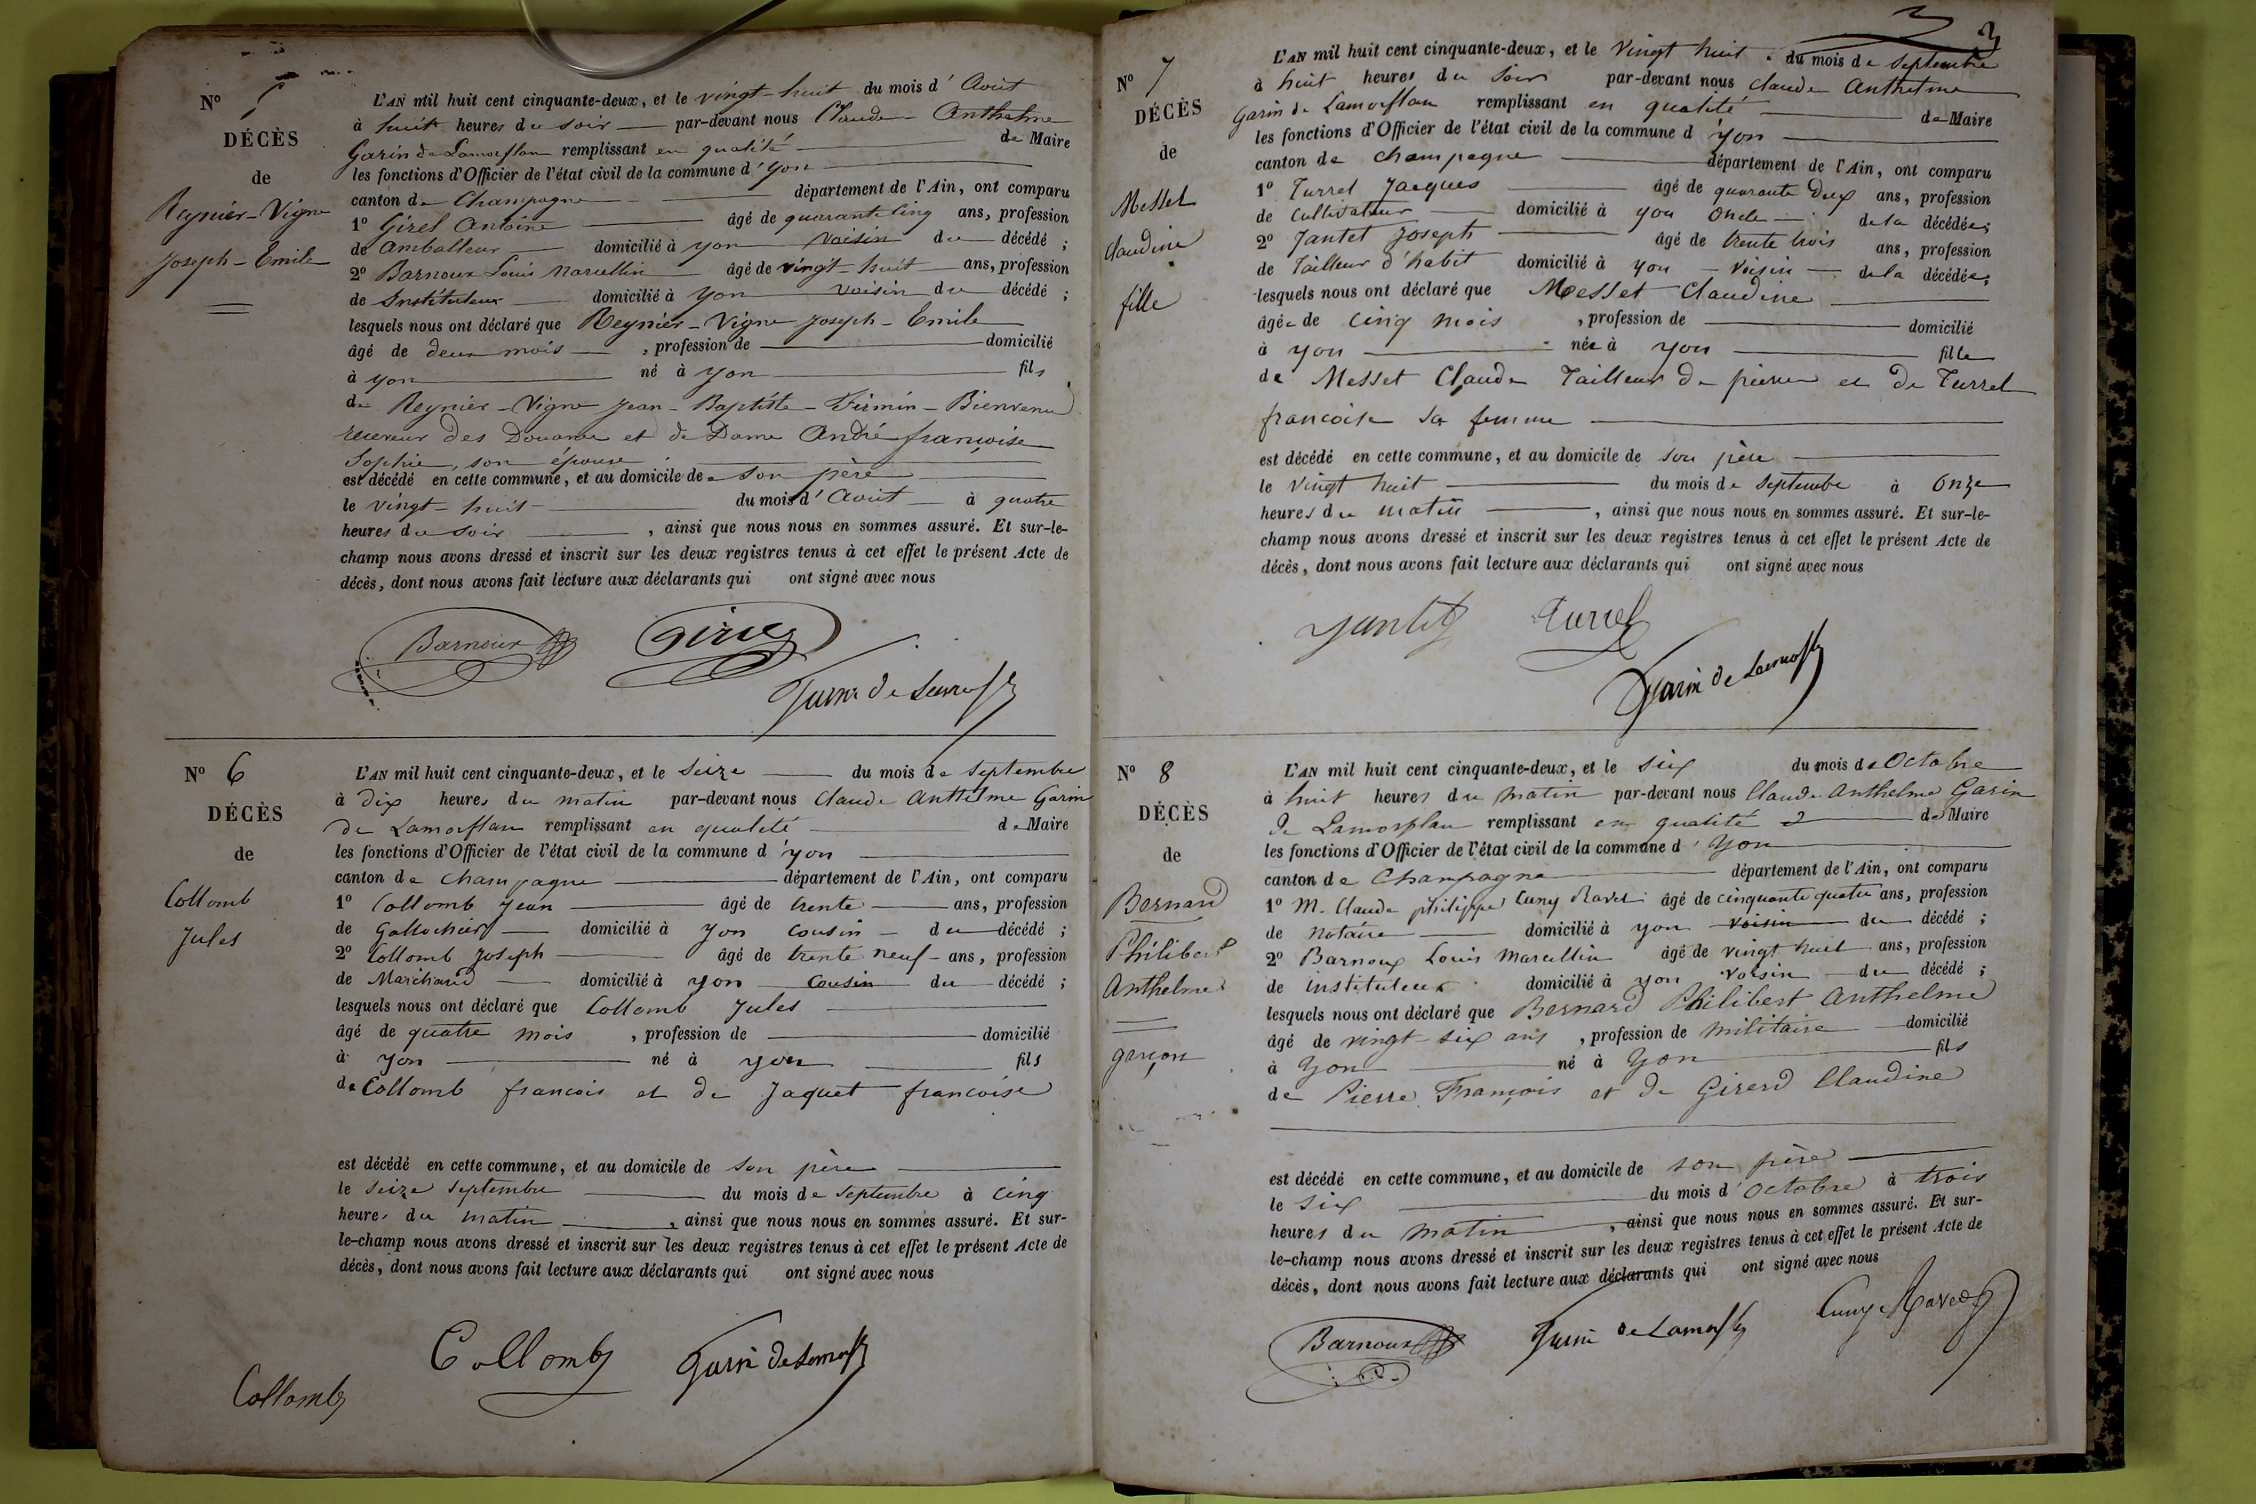 Nº 5
DÉCÈS
de
Reynier-Vigne
Joseph-Emile
L'AN mil huit cent cinquante-deux, et le vingt-huit du mois d'Aout
à huit heures du soir par-devant nous Claude Anthelme
Garin de Lamorflan remplissant en qualité de Maire
les fonctions d'Officier de l'état civil de la commune d'yon
canton de Champagne département de l'Ain, ont comparu
1º Girel Antoine âgé de quarante cinq ans, profession
de emballeur domicilié à yon voisin du décédé ;
2º Barnoux Louis Marcellin âgé de vingt-huit ans, profession
de Instituteur domicilié à yon voisin du décédé ;
lesquels nous ont déclaré que Reynier-Vigne Joseph-Emile
âgé de deux mois , profession de domicilié
à yon né à yon fils
de Reynier-Vigne Jean-Baptiste-Firmin-Bienvenu
receveur des Douanes et de Dame André françoise
Sophie, son épouse
est décédé en cette commune, et au domicile de son père
le vingt-huit du mois d'Aout à quatre
heures du soir , ainsi que nous nous en sommes assuré. Et sur-le-
champ nous avons dressé et inscrit sur les deux registres tenus à cet effet le présent Acte de
décès, dont nous avons fait lecture aux déclarants qui ont signé avec nous
Barnoux Girel
Garin de Lamorfla
Nº 6
DÉCÈS
de
Collomb
Jules
L'AN mil huit cent cinquante-deux, et le Seize du mois de Septembre
à dix heures du matin par-devant nous Claude Anthelme Garin
de Lamorflan remplissant en qualité de Maire
les fonctions d'Officier de l'état civil de la commune d'yon
canton de Champagne département de l'Ain, ont comparu
1º Collomb Jean âgé de trente ans, profession
de Gallochier domicilié à yon cousin du décédé ;
2º Collomb Joseph âgé de trente neuf ans, profession
de Marchand domicilié à yon cousin du décédé ;
lesquels nous ont déclaré que Collomb Jules
âgé de quatre mois , profession de domicilié
à yon né à yon fils
de Collomb francois et de Jaquet francoise
est décédé en cette commune, et au domicile de son père
le seize septembre du mois de septembre à cinq
heures du matin , ainsi que nous nous en sommes assuré. Et sur-
le-champ nous avons dressé et inscrit sur les deux registres tenus à cet effet le présent Acte de
décès, dont nous avons fait lecture aux déclarants qui ont signé avec nous
Collomb Garin de Lamorfla
Collomb
3
Nº 7
DÉCÈS
de
Messet
Claudine
fille
L'AN mil huit cent cinquante-deux, et le vingt huit du mois de Septembre
à huit heures du soir par-devant nous Claude Anthelme
Garin de Lamorflan remplissant en qualité de Maire
les fonctions d'Officier de l'état civil de la commune d'yon
canton de Champagne département de l'Ain, ont comparu
1º Turrel Jacques âgé de quarante deux ans, profession
de Cultivateur domicilié à yon oncle de la décédée ;
2º Jantet Joseph âgé de trente trois ans, profession
de Tailleur d'habit domicilié à yon voisin de la décédée ;
lesquels nous ont déclaré que Messet Claudine
âgée de cinq mois , profession de domicilié
à yon née à yon fille
de Messet Claude Tailleur de pierre et de Turrel
francoise sa femme
est décédé en cette commune, et au domicile de son père
le vingt huit du mois de septembre à onze
heures du matin , ainsi que nous nous en sommes assuré. Et sur-le-
champ nous avons dressé et inscrit sur les deux registres tenus à cet effet le présent Acte de
décès, dont nous avons fait lecture aux déclarants qui ont signé avec nous
Jantet Turrel
Garin de Lamorfla
Nº 8
DÉCÈS
de
Bernard
Philibert
Anthelme
garçon
L'AN mil huit cent cinquante-deux, et le six du mois de Octobre
à huit heures du matin par-devant nous Claude Anthelme Garin
de Lamorflan remplissant en qualité de Maire
les fonctions d'Officier de l'état civil de la commune d'yon
canton de Champagne département de l'Ain, ont comparu
1º M. Claude philippe Cuny Ravet âgé de cinquante quatre ans, profession
de notaire domicilié à yon voisin du décédé ;
2º Barnoux Louis Marcellin âgé de vingt huit ans, profession
de instituteur domicilié à yon voisin du décédé ;
lesquels nous ont déclaré que Bernard Philibert Anthelme
âgé de vingt-six ans , profession de militaire domicilié
à yon né à yon fils
de Pierre François et de Girerd Claudine
est décédé en cette commune, et au domicile de son père
le six du mois d'octobre à trois
heures du matin , ainsi que nous nous en sommes assuré. Et sur-
le-champ nous avons dressé et inscrit sur les deux registres tenus à cet effet le présent Acte de
décès, dont nous avons fait lecture aux déclarants qui ont signé avec nous
Barnoux Garin de Lamorfla Cuny Ravet